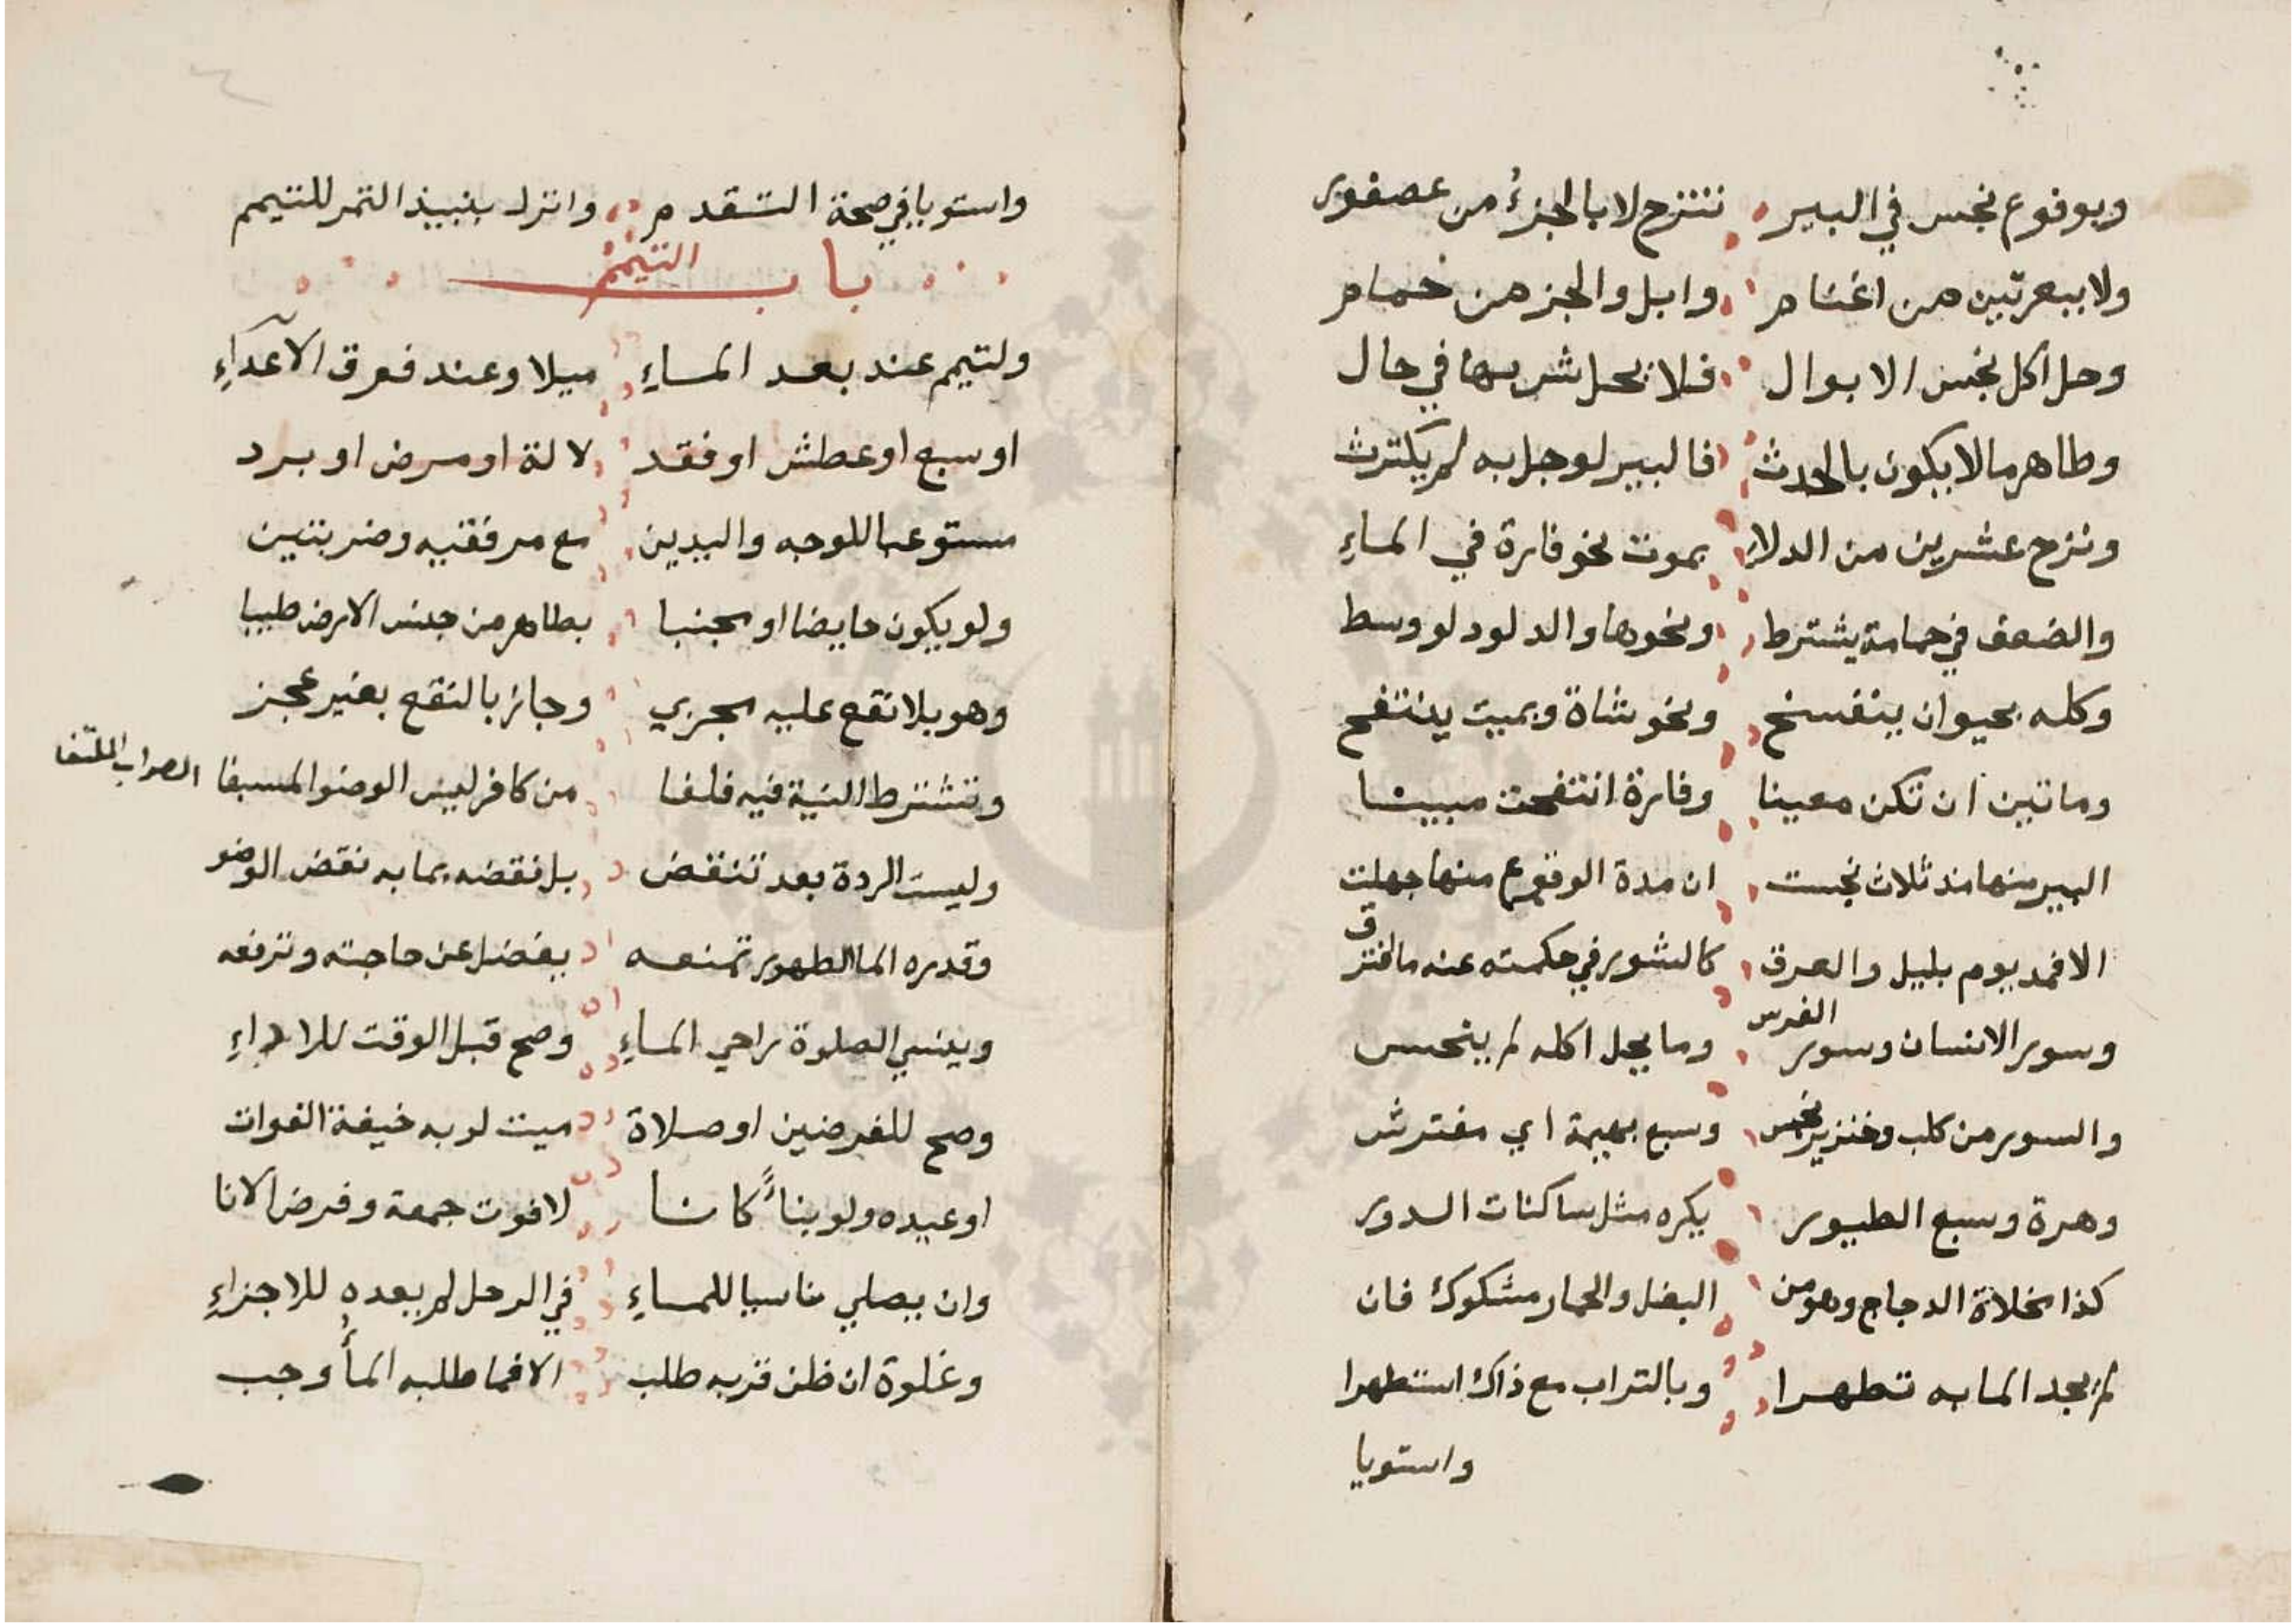 وبوقوع نجس في البير نتنزح لا بالجزء من عصفور
ولا ببعرتين من اغنام وابل والجز من حمام
وحل اكل نجس الابوال فلا يحل شربها في حال
وطاهر ما لا يكون بالحدث فالبير لو جل به لم يكترث
ونزح عشرين من الدلاء بموت نحو فارة في الماءِ
والضعف في حمامة يشترط ونحوها والدلو دلو وسط
وكله بحيوان ينفسخ ونحو شاة وبميت ينتفح
وماتين ان تكن معينا وفارة انتفحت مبينا
البير منها مند ثلاث نجست ان مدة الوقوع منها جهلت
الا فمد يوم بليل والعرق كالسور في حكمته عنه ما افترق
وسور الانسان وسور الفرس وما يحل اكله لم ينجس
والسور من كلب وخنزير نجس وسبع بهيمة اي مفترش
وهرة وسبع الطيور يكره مثل ساكنات الدور
كذا مخلاة الدجاج وهو من البغل والحمار مشكوك فان
لم يجد الما به تطهرا وبالتراب مع ذاك استظهرا
واستويا
واستويا في صحة التقدم واترك بنبيذ التمر للتيمم
باب التيمم
ولتيمم عند بعد الماءِ ميلا وعند فرق الاعداءِ
او سبع او عطش او فقد لالة او مرض او برد
مستوعبا للوجه واليدين مع مرفقيه وضربتين
ولو يكون حايضا او مجنبا بطاهر من جنس الارض طيبا
وهو بلا نقع عليه مجزي وجائز بالنقع بغير عجز
وتشترط النية فيه فلغا من كافر ليس الوضو المسبغا الصواب الملتغا
وليست الردة بعد تنتقض بل نقضه بما به نقض الوضو
وقدره الما الطهور تمنعه بفضل عن حاجته وترفعه
وينسي الصلوة راجي الماءِ وصح قبل الوقت للاداءِ
وصح للفرضين او صلاة ميت لو به خيفة الفوات
او عيده ولو بناءً كانا لا فوت جمعة وفرض الانا
وان يصلي ناسيا للماءِ في الرحل لم يعده للاجزاءِ
وغلوة ان ظن قربه طلب الا فما طلبه الماء وجب